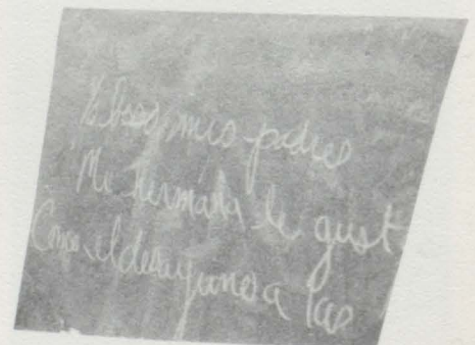 mis padres
Mi hermana le gust
Come el desayuno a las